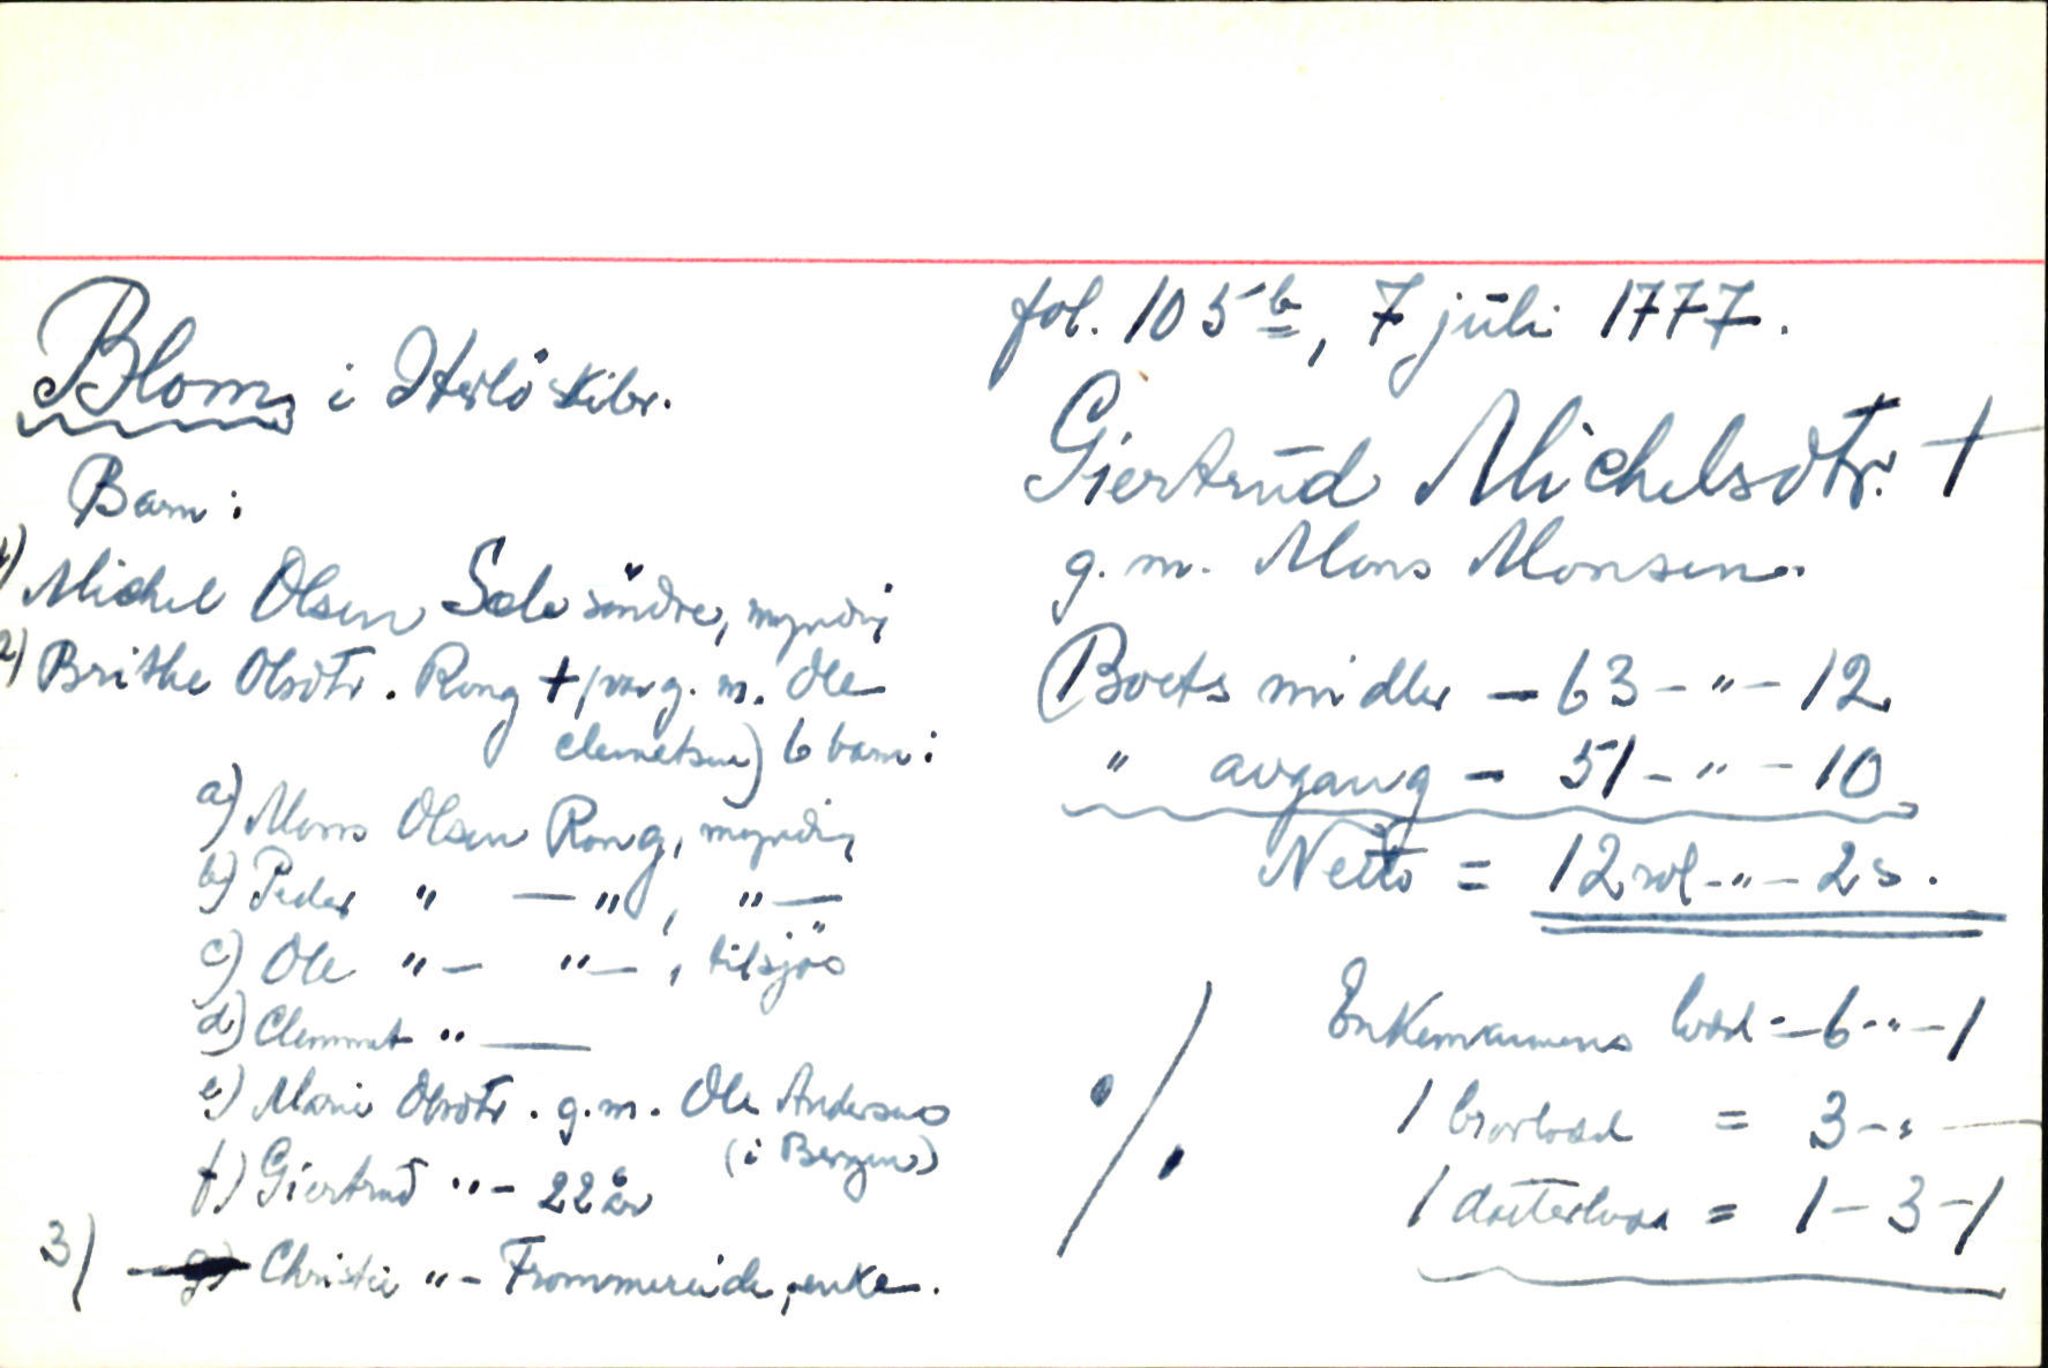 fol. 105 b, 7 júli 1777.
Blom i Herlö skibr.
Giertrud Michelsdtr. +
g. m. Mons Monsen.
Barn:
1) Michel Olsen Sele söndre, myndig
2) Brithe Olsdtr. Rong + (var g. m. Ole
Clemetsen) 6 barn:
a) Mons Olsen Rong, myndig
b) Peder " — " , " —
c) Ole " — " — , tilsjös
d) Clemmet " —
e) Marie Olsdtr. g.m. Ole Andersen
(i Bergen)
f) Giertrud " — 22 år
3) g) Christie " — Frommereide, enke.
Boets midler — 63 — " — 12
" avgang — 51 — " — 10
Netto = 12 rdl — " — 2 s.
Enkemannens lodd — 6 — " — 1
1 brorlodd = 3 — " —
1 dotterlodd = 1 — 3 — 1
·/.